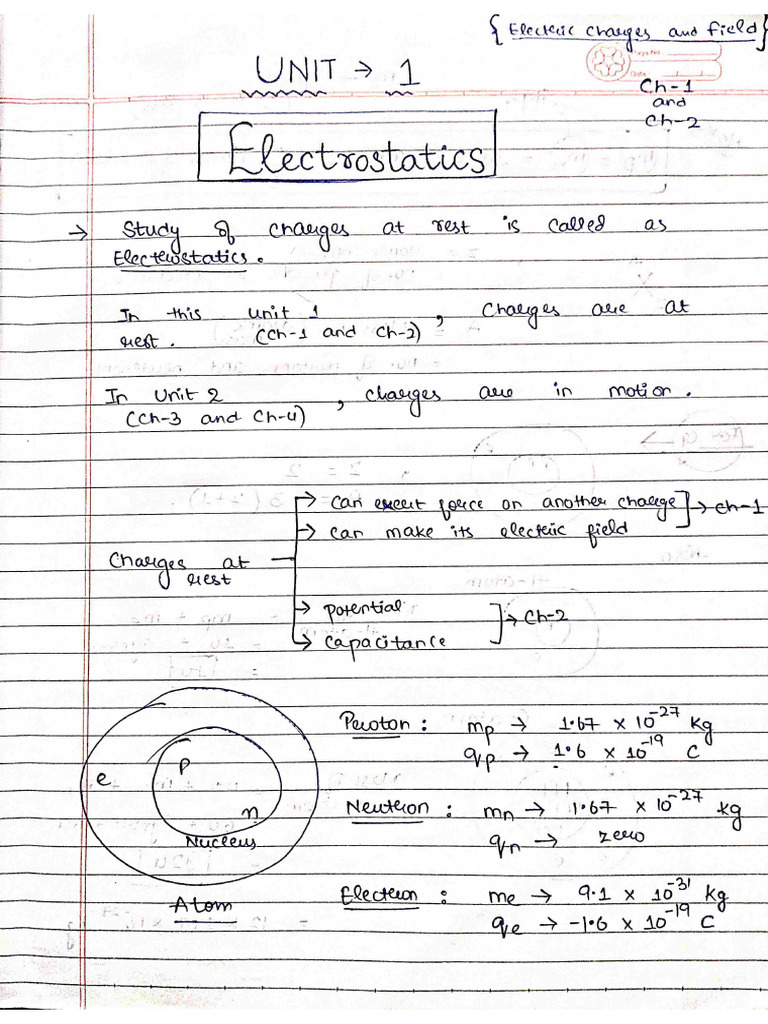 { Electric charges and field }
UNIT → 1
Ch-1
and
Ch-2
Electrostatics
→ Study of charges at rest is called as
Electrostatics.
In this unit 1 , charges are at
rest. (Ch-1 and Ch-2)
In Unit 2 , charges are in motion.
(Ch-3 and Ch-4)
Charges at rest
→ can exert force on another charge
→ can make its electric field
→ Ch-1
→ potential
→ capacitance
→ Ch-2
e
P
n
Nucleus
Atom
Proton : mp → 1.67 × 10⁻²⁷ kg
qp → 1.6 × 10⁻¹⁹ C
Neutron : mn → 1.67 × 10⁻²⁷ kg
qn → zero
Electron : me → 9.1 × 10⁻³¹ kg
qe → -1.6 × 10⁻¹⁹ C